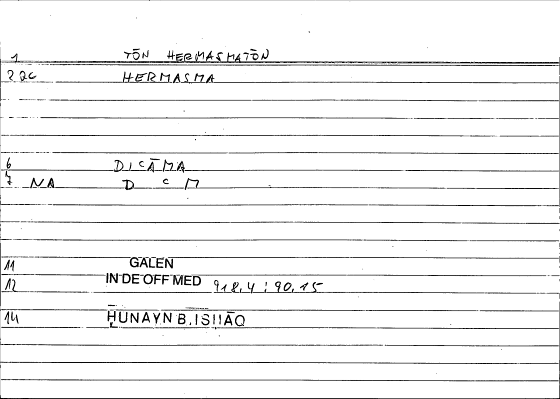 1 TŌN HERMASMATŌN
2 2C HERMASMA
6 DIᶜĀMA
7 NA D ᶜ M
11 GALEN
12 IN DE OFF MED 918,4 : 90,15
14 ḤUNAYN B. ISḤĀQ